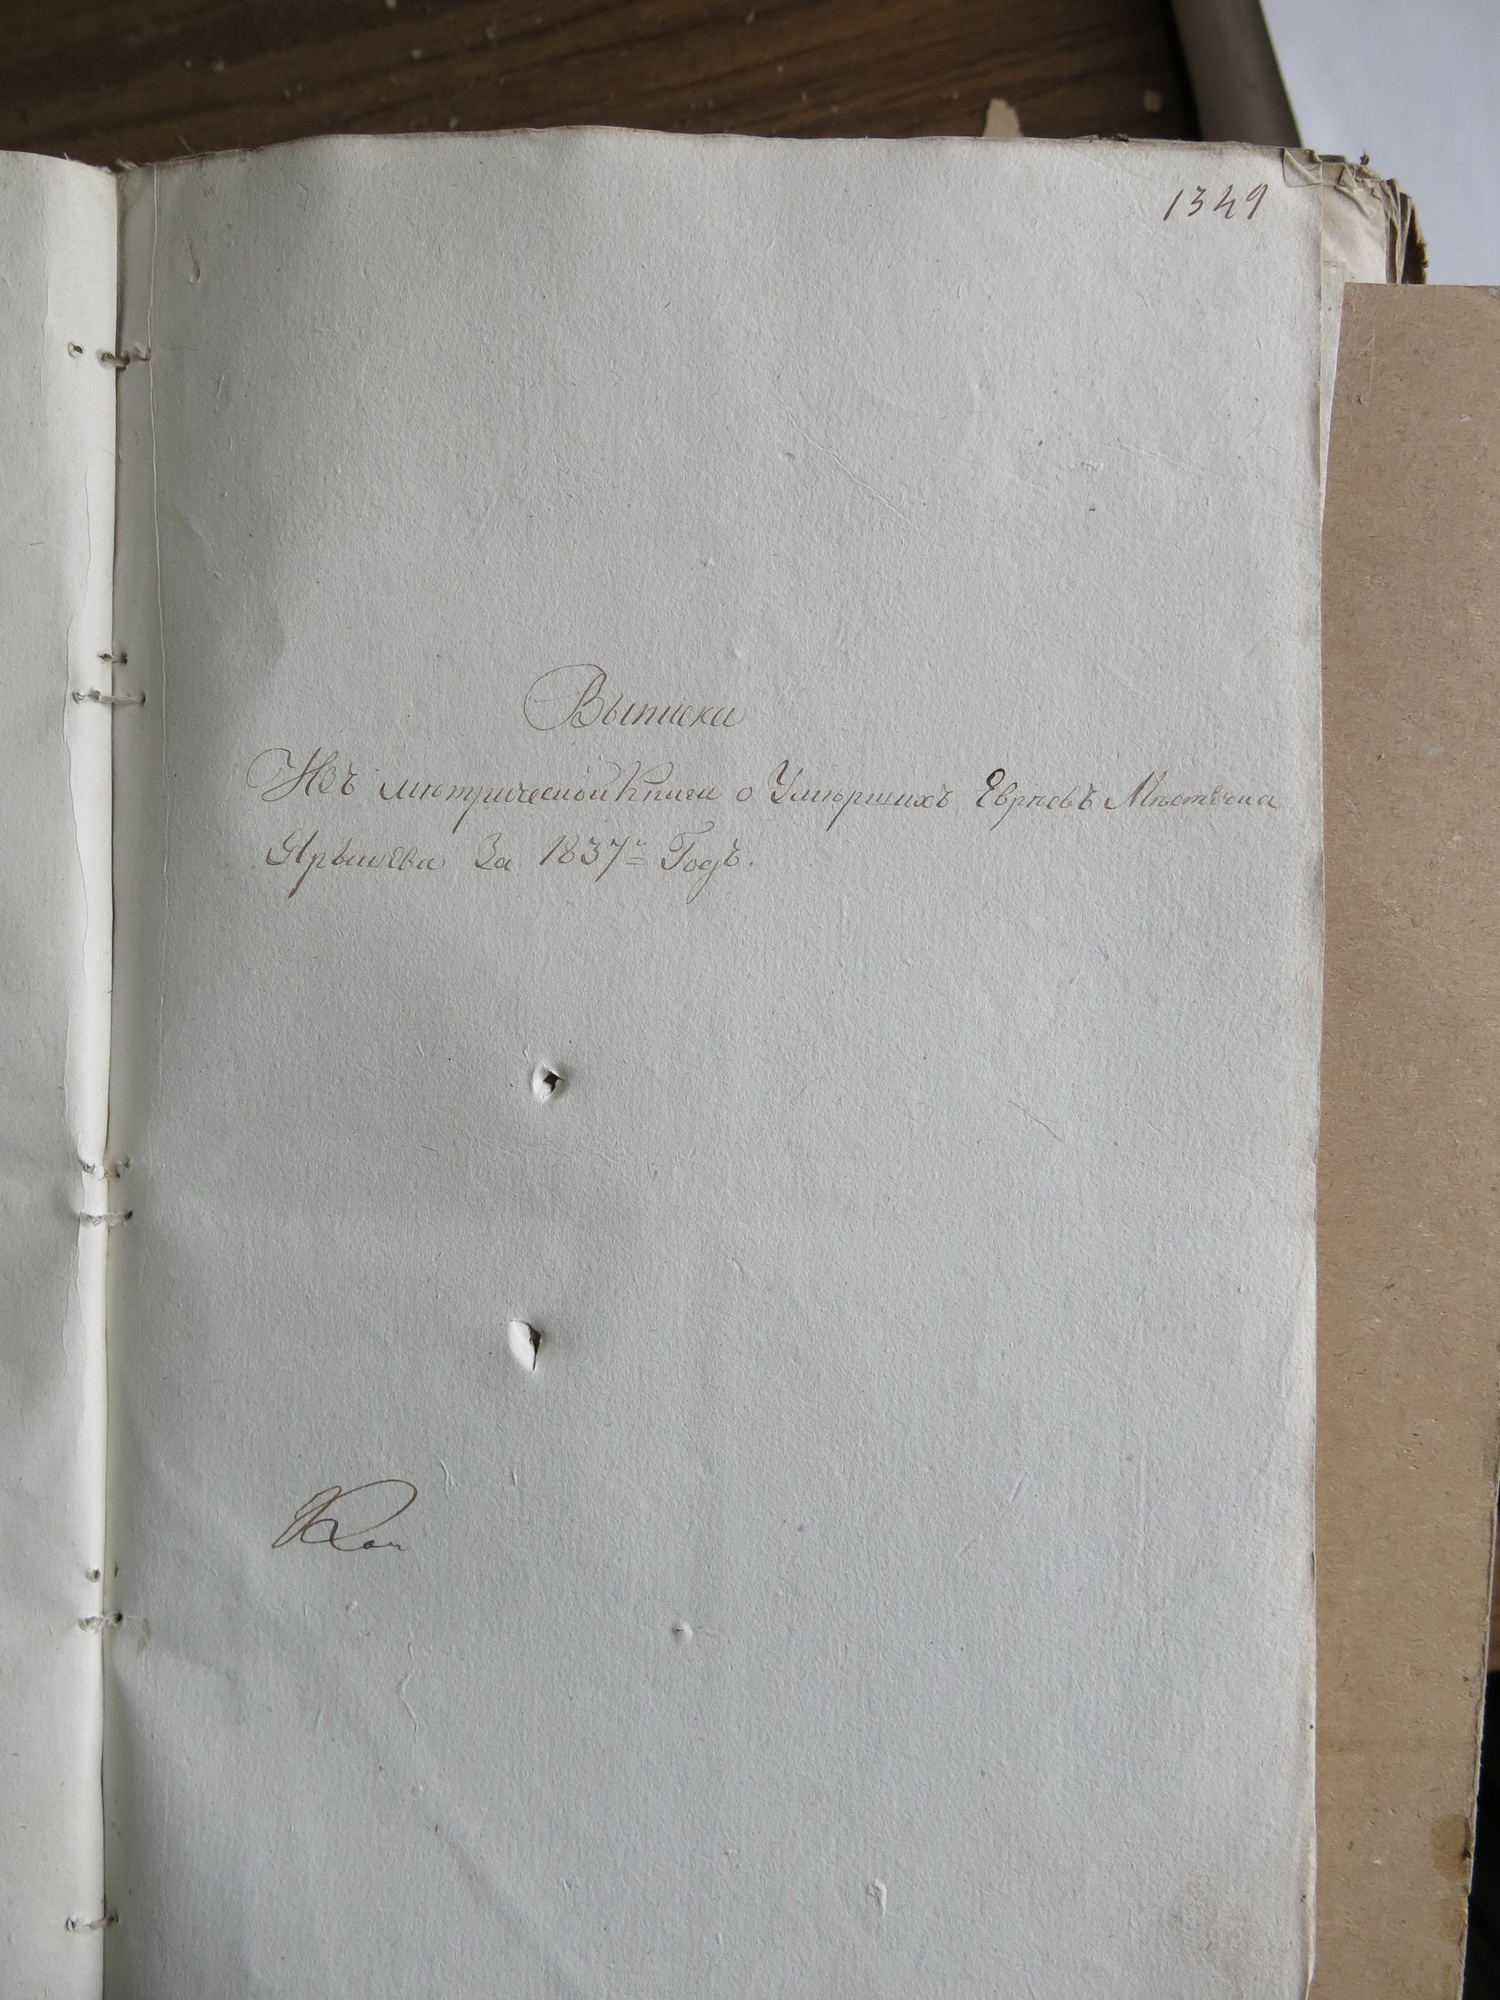 1349
Выписка
Изъ мѣтрической Книги о Умѣршихъ Еврѣевъ Мѣстѣчка
Ярышева За 1837й Годъ.